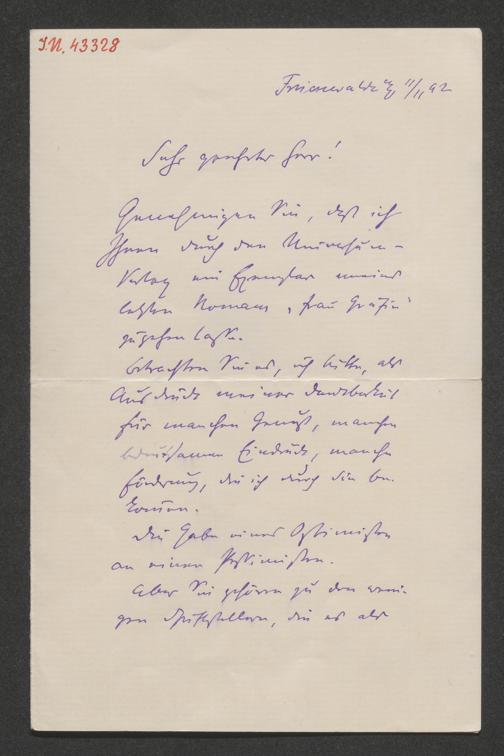 I.N. 43328
Freienwalde a/O 11/11 92
Sehr geehrter Herr!
Genehmigen Sie, daß ich
Ihnen durch den Universum-
Verlag ein Exemplar meines
letzten Romans „Frau Gräfin“
zugehen lasse.
Betrachten Sie es, ich bitte, als
Ausdruck meiner Dankbarkeit
für manchen Genuß, manchen
bedeutsamen Eindruck, manche
Förderung, die ich durch Sie be-
kommen.
Die Gabe eines Optimisten
an einen Pessimisten.
Aber Sie gehören zu den weni-
gen Schriftstellern, die es als